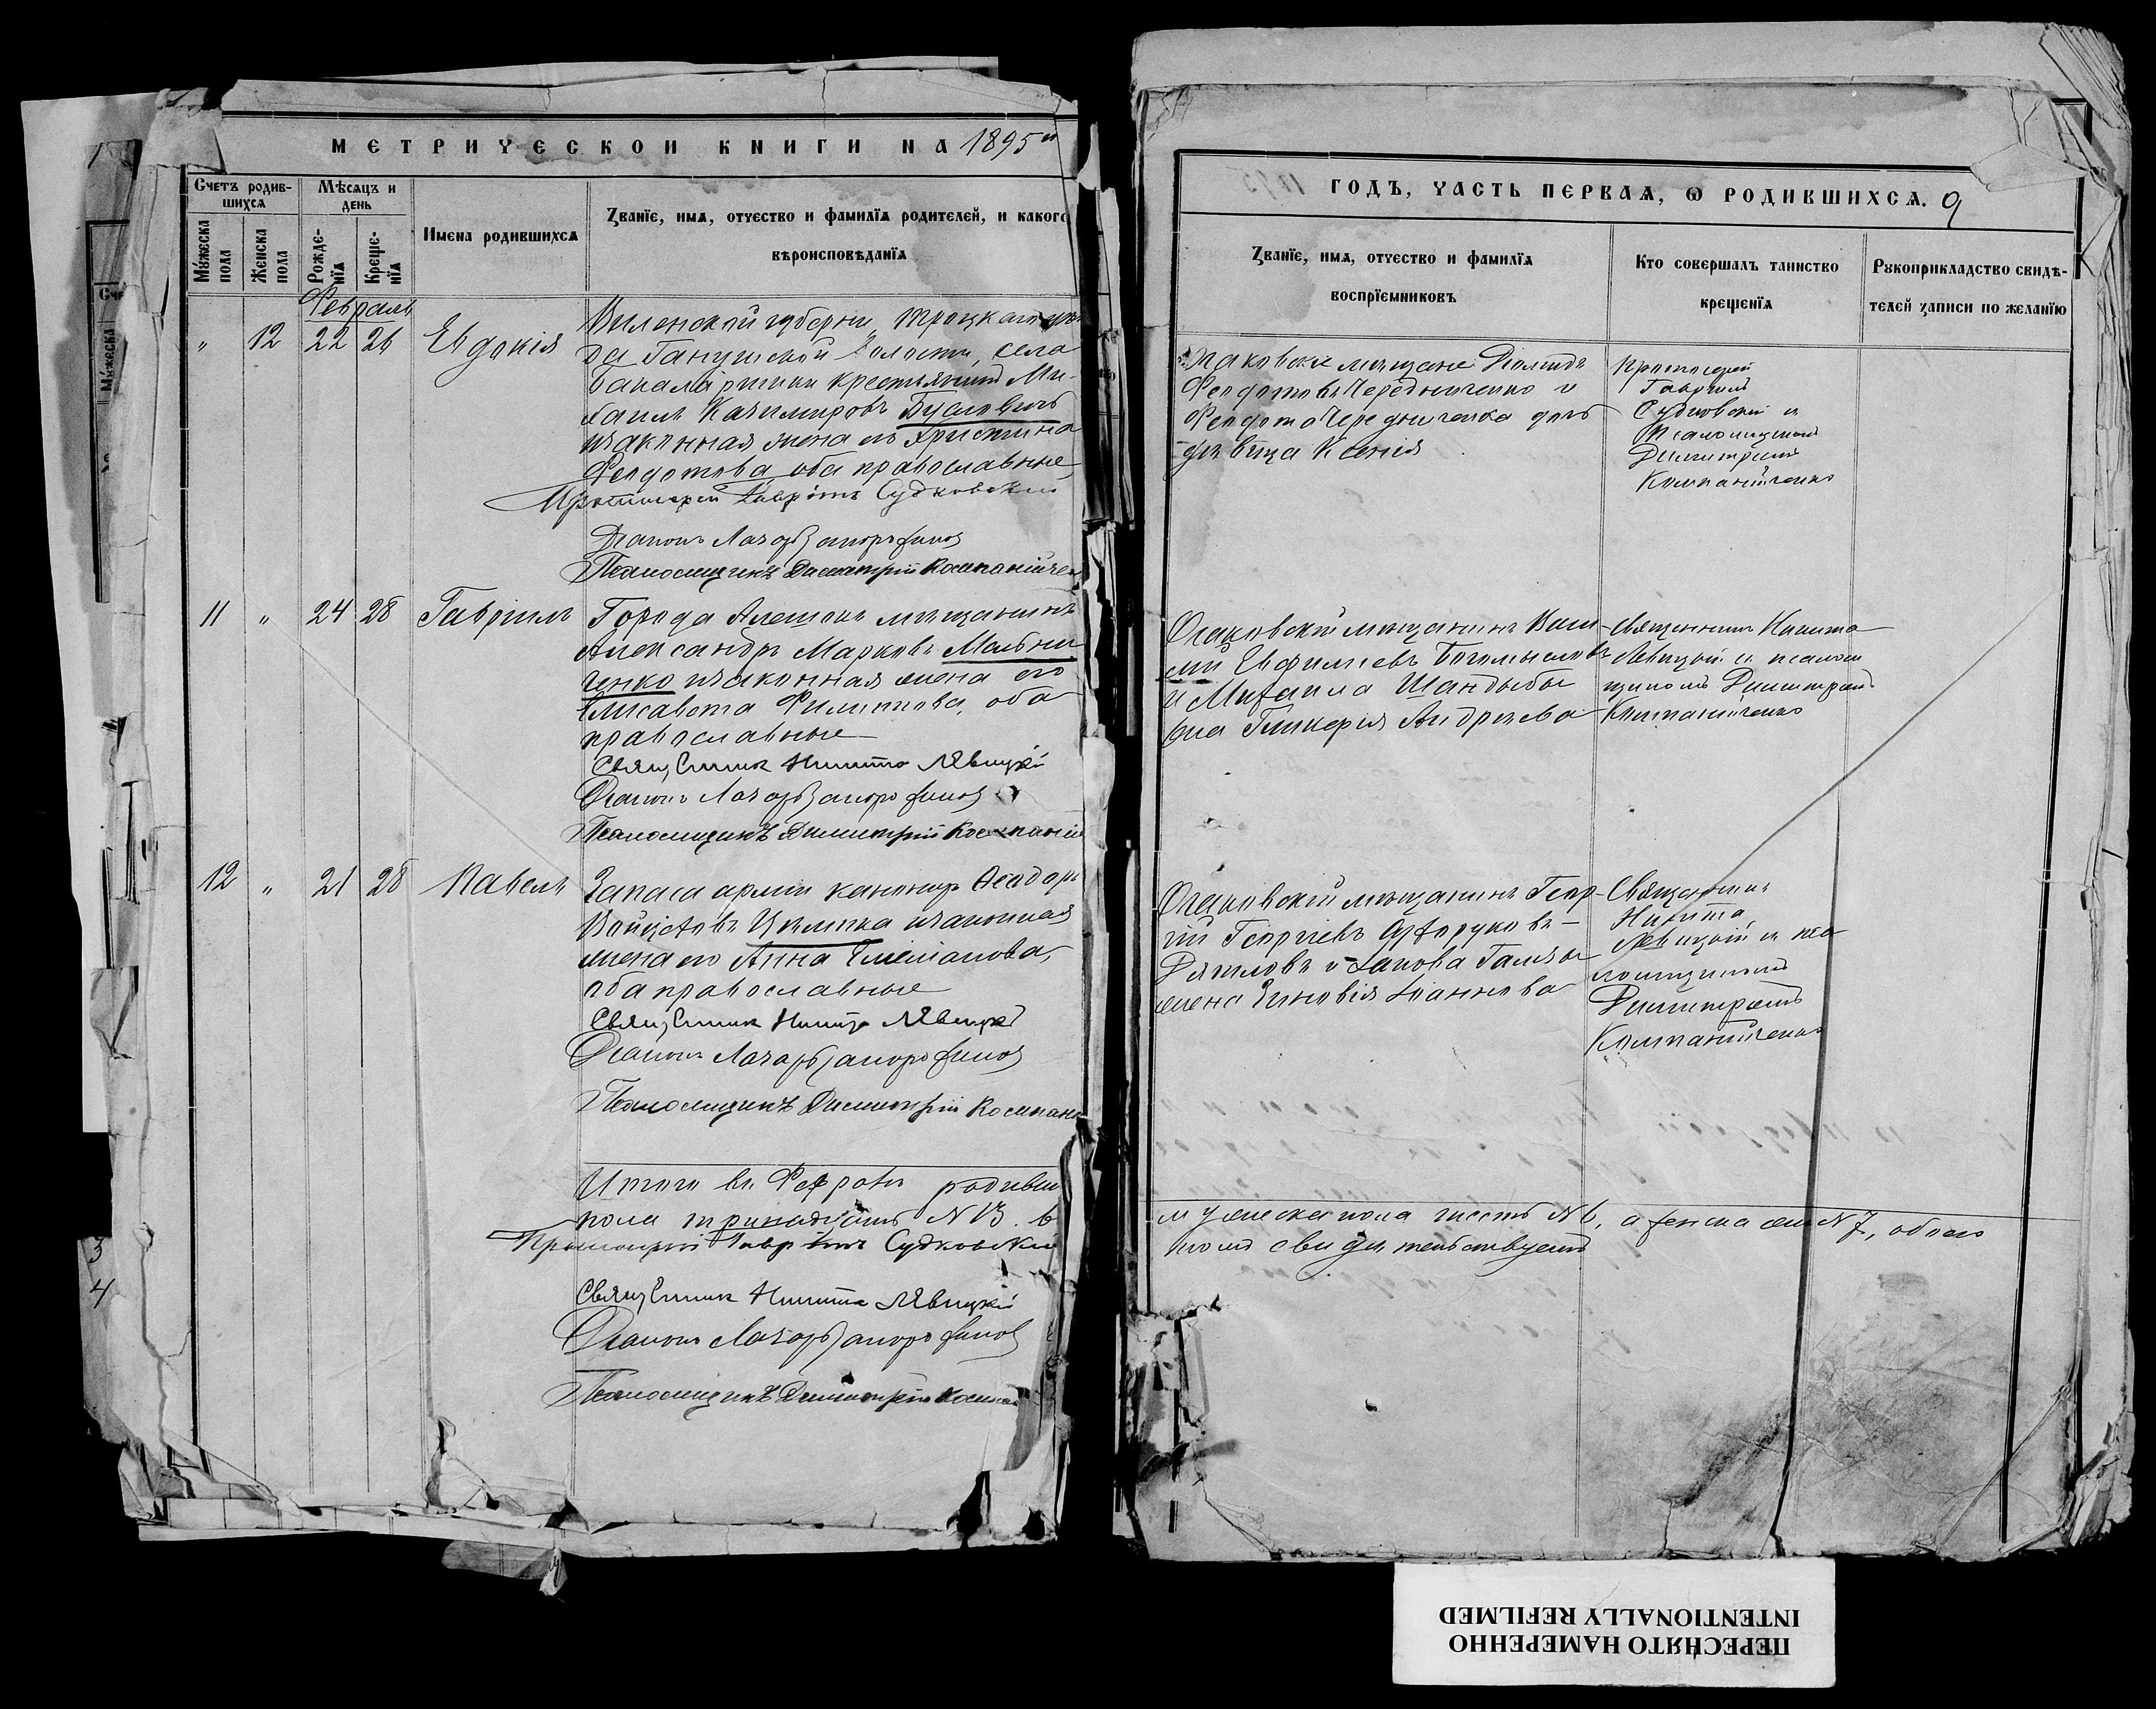 МЕТРИЧЕСКОЙ КНИГИ НА 1895й
Счетъ родив-
шихся
Мѣсяцъ и
день
Мужеска
пола
Женска
пола
Рожде-
нія
Креще-
нія
Имена родившихся
Званіе, имя, отчество и фамилія родителей, и какого
вѣроисповѣданія
Февраль
„ 12 22 26 Евдокія
Виленской губерніи, Троцкаго
да Ганушской волости, села
крестьянинъ Ми-
хаилъ Казимировъ Буслович
и законная жена его Христина
Феодотова, оба православные
Протоіерей Гавріилъ Судковскій
Діаконъ Лазарь
Псаломщикъ Димитрій Компанійчен
11 „ 24 28 Гавріилъ
Города Алешокъ мѣщанинъ
Александръ Марковъ Мельни
ченко и законная жена его
Елисавета Филиппова, оба
православные
Священникъ Никита Лѣвицкій
Діаконъ Лазарь
Псаломщикъ Димитрій Компаній
12 „ 21 28 Павелъ
Запаса арміи канониръ Ѳеодоръ
и законная
жена его Анна Емеліанова,
оба православные
Священникъ Никита Лѣвицкій
Діаконъ Лазарь
Псаломщикъ Димитрій Компан
Итого въ Февралѣ родивш
пола тринадцать N 13. в
Протоіерей Гавріилъ Судковскій
Священникъ Никита Лѣвицкій
Діаконъ Лазарь
Псаломщикъ Димитрій Компан
ГОДЪ, ЧАСТЬ ПЕРВАЯ, Ѡ РОДИВШИХСЯ. 9
Званіе, имя, отчество и фамилія
воспріемниковъ
Кто совершалъ таинство
крещенія
Рукоприкладство свидѣ-
телей записи по желанію
мѣщане
Феодотовъ Чередниченко и
Феодота Чередниченка дочь
дѣвица Ксенія
Протоіерей
Гавріилъ
Судковскій и
Псаломщикомъ
Димитріемъ
Компанійченко
Очаковскій мѣщанинъ Васи-
лій Евфиміевъ Богомысловъ
и Михаила
Гликерія Андреева
Священникъ Никита
Левицкій и псалом
щикомъ Димитріемъ
Компанійченко
Очаковскій мѣщанинъ Геор-
гій Георгіевъ
жена Зиновія Іоаннова
Священникъ
Никита
Левицкій и пса
ломщикомъ
Димитріемъ
Компанійченко
мужеска пола шесть N 6, а женска семь N 7, обоего
томъ свидѣтельствуемъ
ПЕРЕСНЯТО НАМЕРЕННО
INTENTIONALLY REFILMED